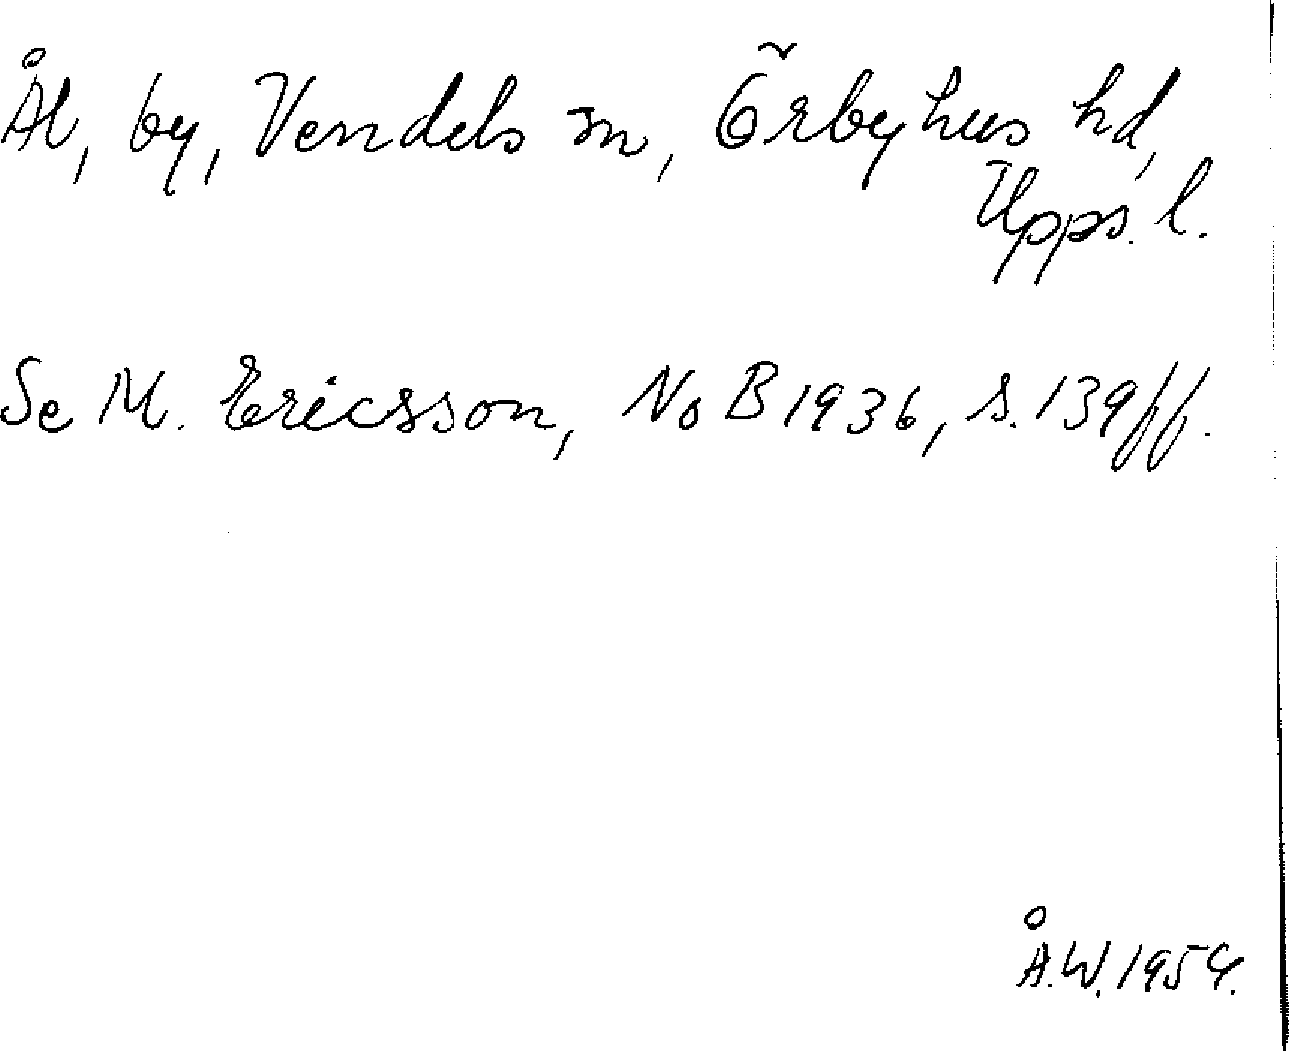 Ål, by, Vendels sn, Örbyhus hd,
Upps. l.
Se M. Ericsson, NoB 1936, s. 139 ff.
Å.W. 1954.